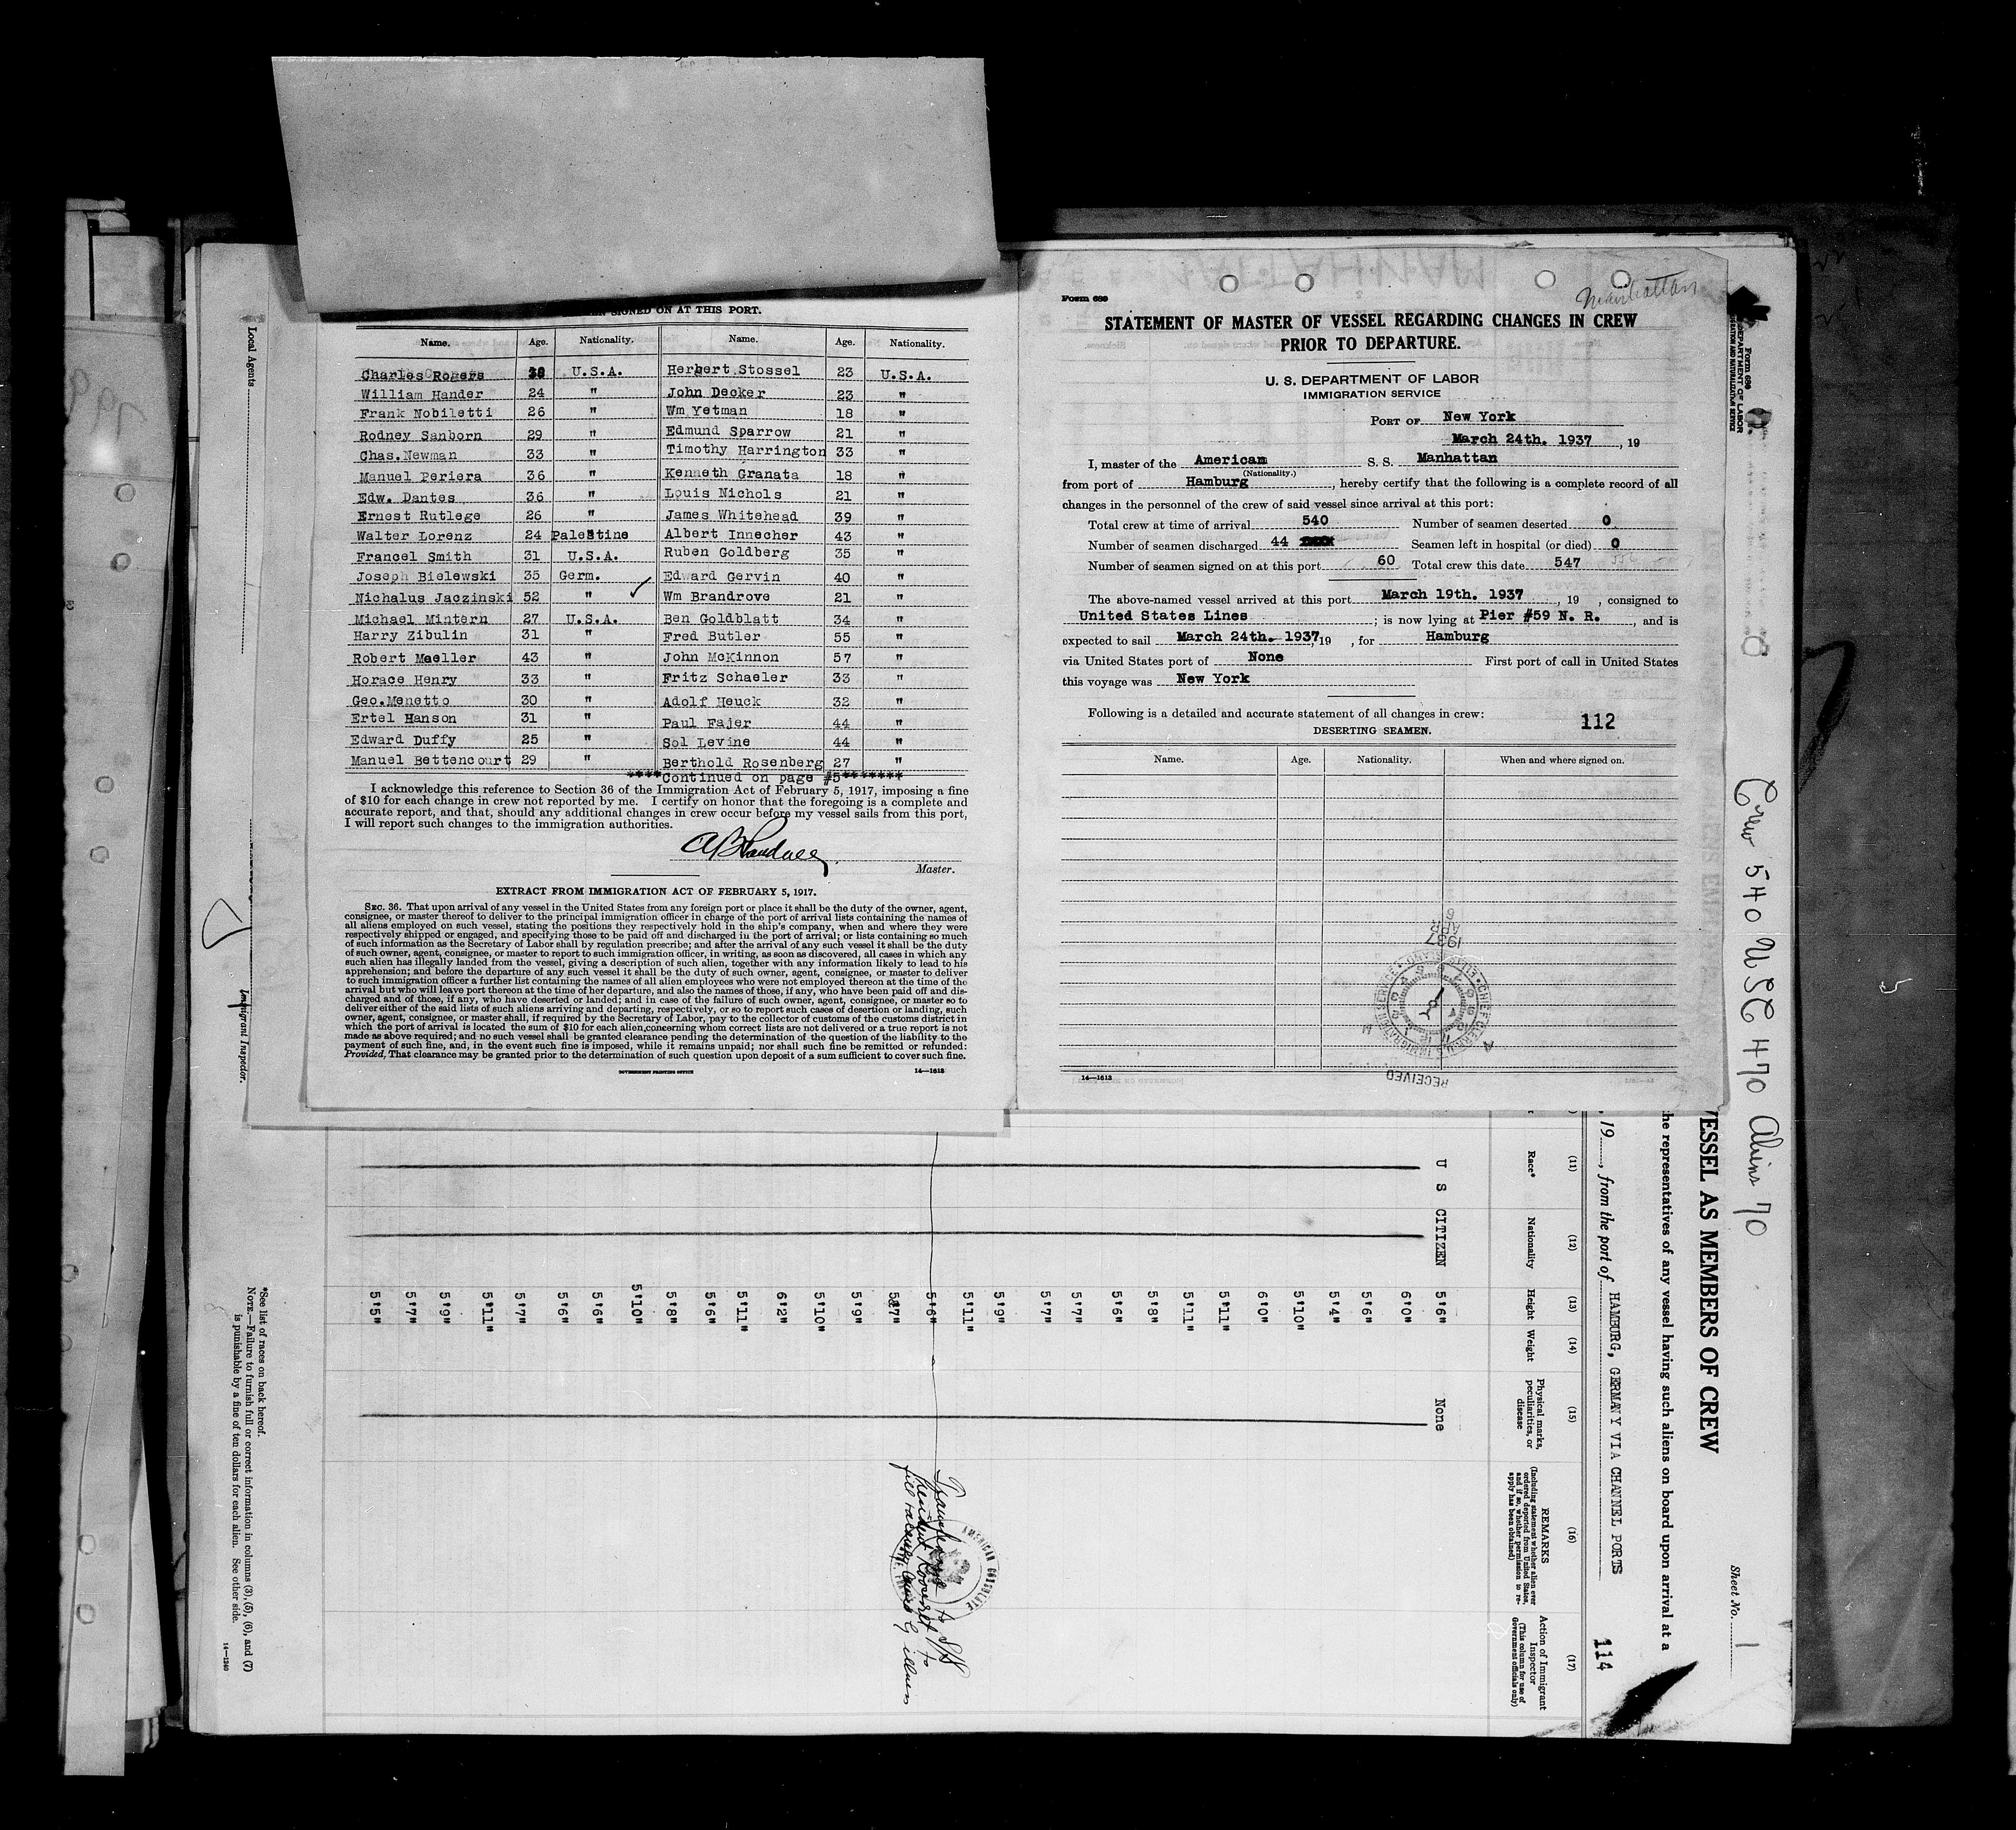 SIGNED ON AT THIS PORT.
Name. Age. Nationality. Name. Age. Nationality.
Charles Rogers U.S.A. Herbert Stossel 23 U.S.A.
William Hander 24 " John Decker 23 "
Frank Nobiletti 26 " Wm Yetman 18 "
Rodney Sanborn 29 " Edmund Sparrow 21 "
Chas.Newman 33 " Timothy Harrington 33 "
Manuel Periera 36 " Kenneth Granata 18 "
Edw. Dantes 36 " Louis Nichols 21 "
Ernest Rutlege 26 " James Whitehead 39 "
Walter Lorenz 24 Palestine Albert Innecher 43 "
Francel Smith 31 U.S.A. Ruben Goldberg 35 "
Joseph Bielewski 35 Germ. Edward Gervin 40 "
Nichalus Jaczinski 52 " Wm Brandrove 21 "
Michael Mintern 27 U.S.A. Ben Goldblatt 34 "
Harry Zibulin 31 " Fred Butler 55 "
Robert Maeller 43 " John McKinnon 57 "
Horace Henry 33 " Fritz Schaeler 33 "
Geo.Menetto 30 " Adolf Heuck 32 "
Ertel Hanson 31 " Paul Fajer 44 "
Edward Duffy 25 " Sol Levine 44 "
Manuel Bettencourt 29 " Berthold Rosenberg 27 "
****Continued on page #5*******
I acknowledge this reference to Section 36 of the Immigration Act of February 5, 1917, imposing a fine
of $10 for each change in crew not reported by me. I certify on honor that the foregoing is a complete and
accurate report, and that, should any additional changes in crew occur before my vessel sails from this port,
I will report such changes to the immigration authorities.
Master.
EXTRACT FROM IMMIGRATION ACT OF FEBRUARY 5, 1917.
SEC. 36. That upon arrival of any vessel in the United States from any foreign port or place it shall be the duty of the owner, agent,
consignee, or master thereof to deliver to the principal immigration officer in charge of the port of arrival lists containing the names of
all aliens employed on such vessel, stating the positions they respectively hold in the ship's company, when and where they were
respectively shipped or engaged, and specifying those to be paid off and discharged in the port of arrival; or lists containing so much
of such information as the Secretary of Labor shall by regulation prescribe; and after the arrival of any such vessel it shall be the duty
of such owner, agent, consignee, or master to report to such immigration officer, in writing, as soon as discovered, all cases in which any
such alien has illegally landed from the vessel, giving a description of such alien, together with any information likely to lead to his
apprehension; and before the departure of any such vessel it shall be the duty of such owner, agent, consignee, or master to deliver
to such immigration officer a further list containing the names of all alien employees who were not employed thereon at the time of the
arrival but who will leave port thereon at the time of her departure, and also the names of those, if any, who have been paid off and dis-
charged and of those, if any, who have deserted or landed; and in case of the failure of such owner, agent, consignee, or master so to
deliver either of the said lists of such aliens arriving and departing, respectively, or so to report such cases of desertion or landing, such
owner, agent, consignee, or master shall, if required by the Secretary of Labor, pay to the collector of customs of the customs district in
which the port of arrival is located the sum of $10 for each alien,concerning whom correct lists are not delivered or a true report is not
made as above required; and no such vessel shall be granted clearance pending the determination of the question of the liability to the
payment of such fine, and, in the event such fine is imposed, while it remains unpaid; nor shall such fine be remitted or refunded:
Provided, That clearance may be granted prior to the determination of such question upon deposit of a sum sufficient to cover such fine.
GOVERNMENT PRINTING OFFICE 14—1613
Form 689
Manhattan
STATEMENT OF MASTER OF VESSEL REGARDING CHANGES IN CREW
PRIOR TO DEPARTURE.
U. S. DEPARTMENT OF LABOR
IMMIGRATION SERVICE
PORT OF New York
March 24th. 1937, 19
I, master of the American S. S. Manhattan
(Nationality.)
from port of Hamburg, hereby certify that the following is a complete record of all
changes in the personnel of the crew of said vessel since arrival at this port:
Total crew at time of arrival 540 Number of seamen deserted 0
Number of seamen discharged 44 Seamen left in hospital (or died) 0
Number of seamen signed on at this port 60 Total crew this date 547
The above-named vessel arrived at this port March 19th. 1937, 19 , consigned to
United States Lines ; is now lying at Pier #59 N. R., and is
expected to sail March 24th. 1937, 19 , for Hamburg
via United States port of None First port of call in United States
this voyage was New York
Following is a detailed and accurate statement of all changes in crew: 112
DESERTING SEAMEN.
Name. Age. Nationality. When and where signed on.
1937
APR
RECEIVED
14—1613
Form 689
Crew 540 USC 470 Aliens 70
Sheet No. 1
VESSEL AS MEMBERS OF CREW
the representatives of any vessel having such aliens on board upon arrival at a
, 19 , from the port of HAMBURG, GERMANY VIA CHANNEL PORTS
114
(11) (12) (13) (14) (15) (16) (17)
Race* Nationality Height Weight Physical marks, peculiarities, or disease
REMARKS
(Including statement whether alien ever ordered deported from United States, and if so, whether permission to re-apply has been obtained)
Action of Immigrant Inspector
(This column for use of Government officials only)
U S CITIZEN 5'6" None
6'0"
5'6"
5'4"
5'10"
6'0"
5'11"
5'11"
5'8"
5'6"
5'7"
5'7"
5'9"
5'11"
5'6"
5'7"
5'9"
5'10"
6'2"
5'11"
5'6"
5'8"
5'10"
5'6"
5'6"
5'7"
5'11"
5'9"
5'7"
5'5"
AMERICAN CONSULATE
*See list of races on back hereof.
NOTE.—Failure to furnish full or correct information in columns (3), (5), (6), and (7)
is punishable by a fine of ten dollars for each alien. See other side.
14—1240
Local Agents
Immigrant Inspector.